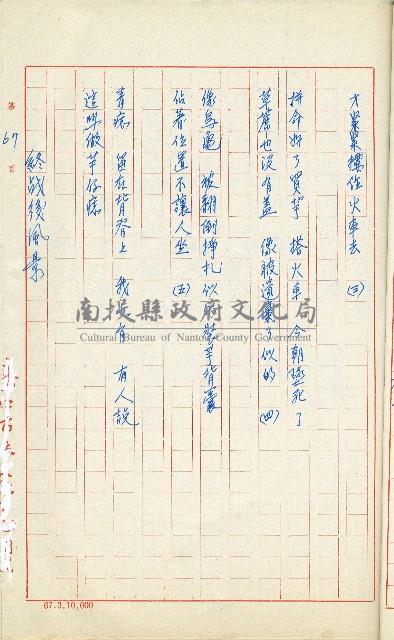 才業業攥住火車去 (三)
拼命好了買芋 搭火車 今朝墜死了
草蓆也沒有蓋 像被遺棄了似的 (四)
像烏龜 被翻倒掙扎似的 裝芋背囊
佔著位置不讓人坐 (五)
青痣 留在背脊上 我有 有人說
這叫做芋仔痣
終戰後風景
第 67 頁
南投縣政府文化局
Cultural Bureau of Nantou County Government
67.3.10,000